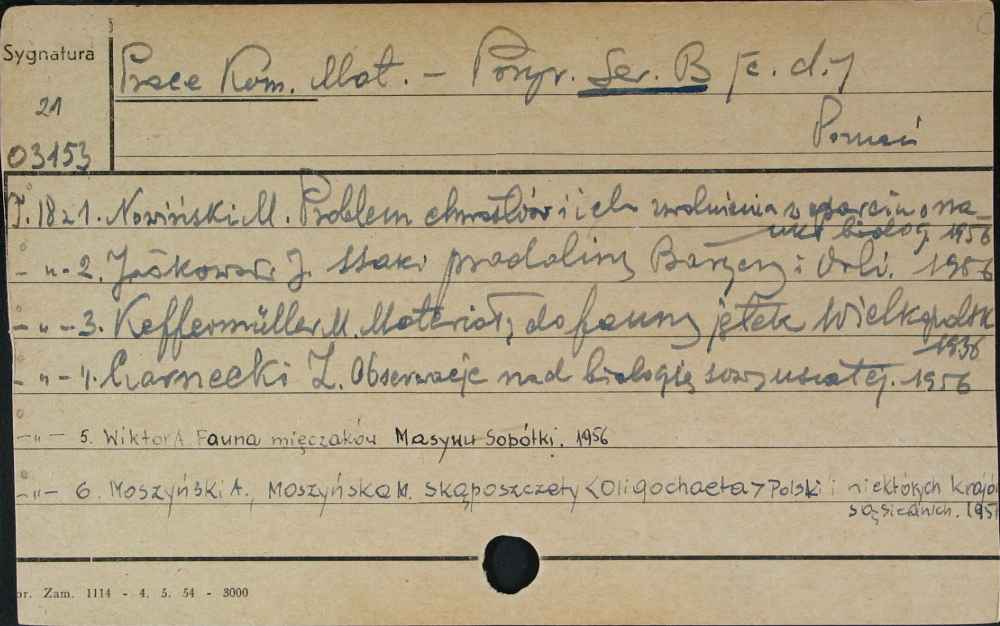 Sygnatura
21
03153
Prace Kom. Mat. - Przyr. Ser. B /c. d./
Poznań
T. 18 z 1. Nowiński M. Problem chwastów i ich zwalczania w oparciu o na-
uki biolog. 1956
- " - 2. Jaśkowski J. Ssaki pradoliny Baryczy i Orli. 1956
- " - 3. Keffermüller M. Materiały do fauny jętek Wielkopolsk
1956
- " - 4. Czarnecki Z. Obserwacje nad biologią sowy uszatej. 1956
- " - 5. Wiktor A. Fauna mięczaków Masywu Sobótki. 1956
- " - 6. Moszyński A., Moszyńska M. Skąposzczety <Oligochaeta> Polski i niektórych krajó
sąsiednich. 195
or. Zam. 1114 - 4. 5. 54 - 3000